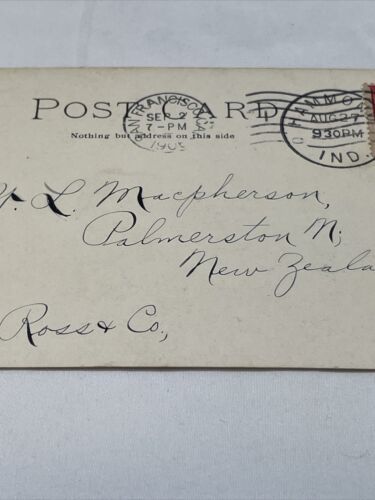 POST CARD
Nothing but address on this side
SAN FRANCISCO, CA
SEP 2
7-PM
190
HAMMO
AUG 27
930PM
IND.
L. Macpherson,
Palmerston N;
New Zeala
Ross & Co,